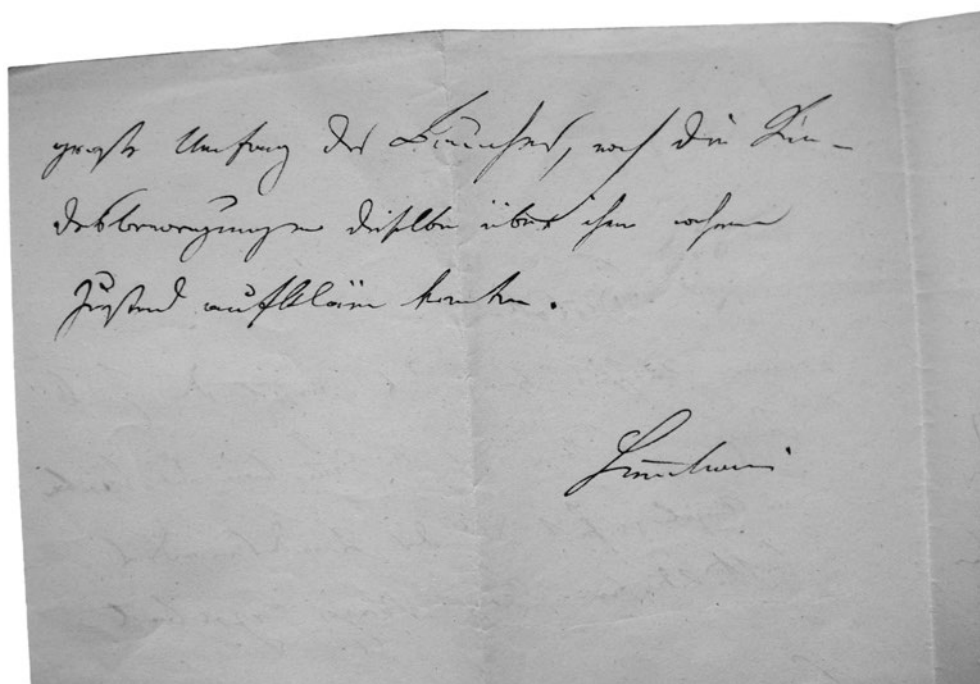 große Umfang des Bauches, noch die Kin-
desbewegungen dieselbe über ihren wahren
Zustand aufklären konnten.